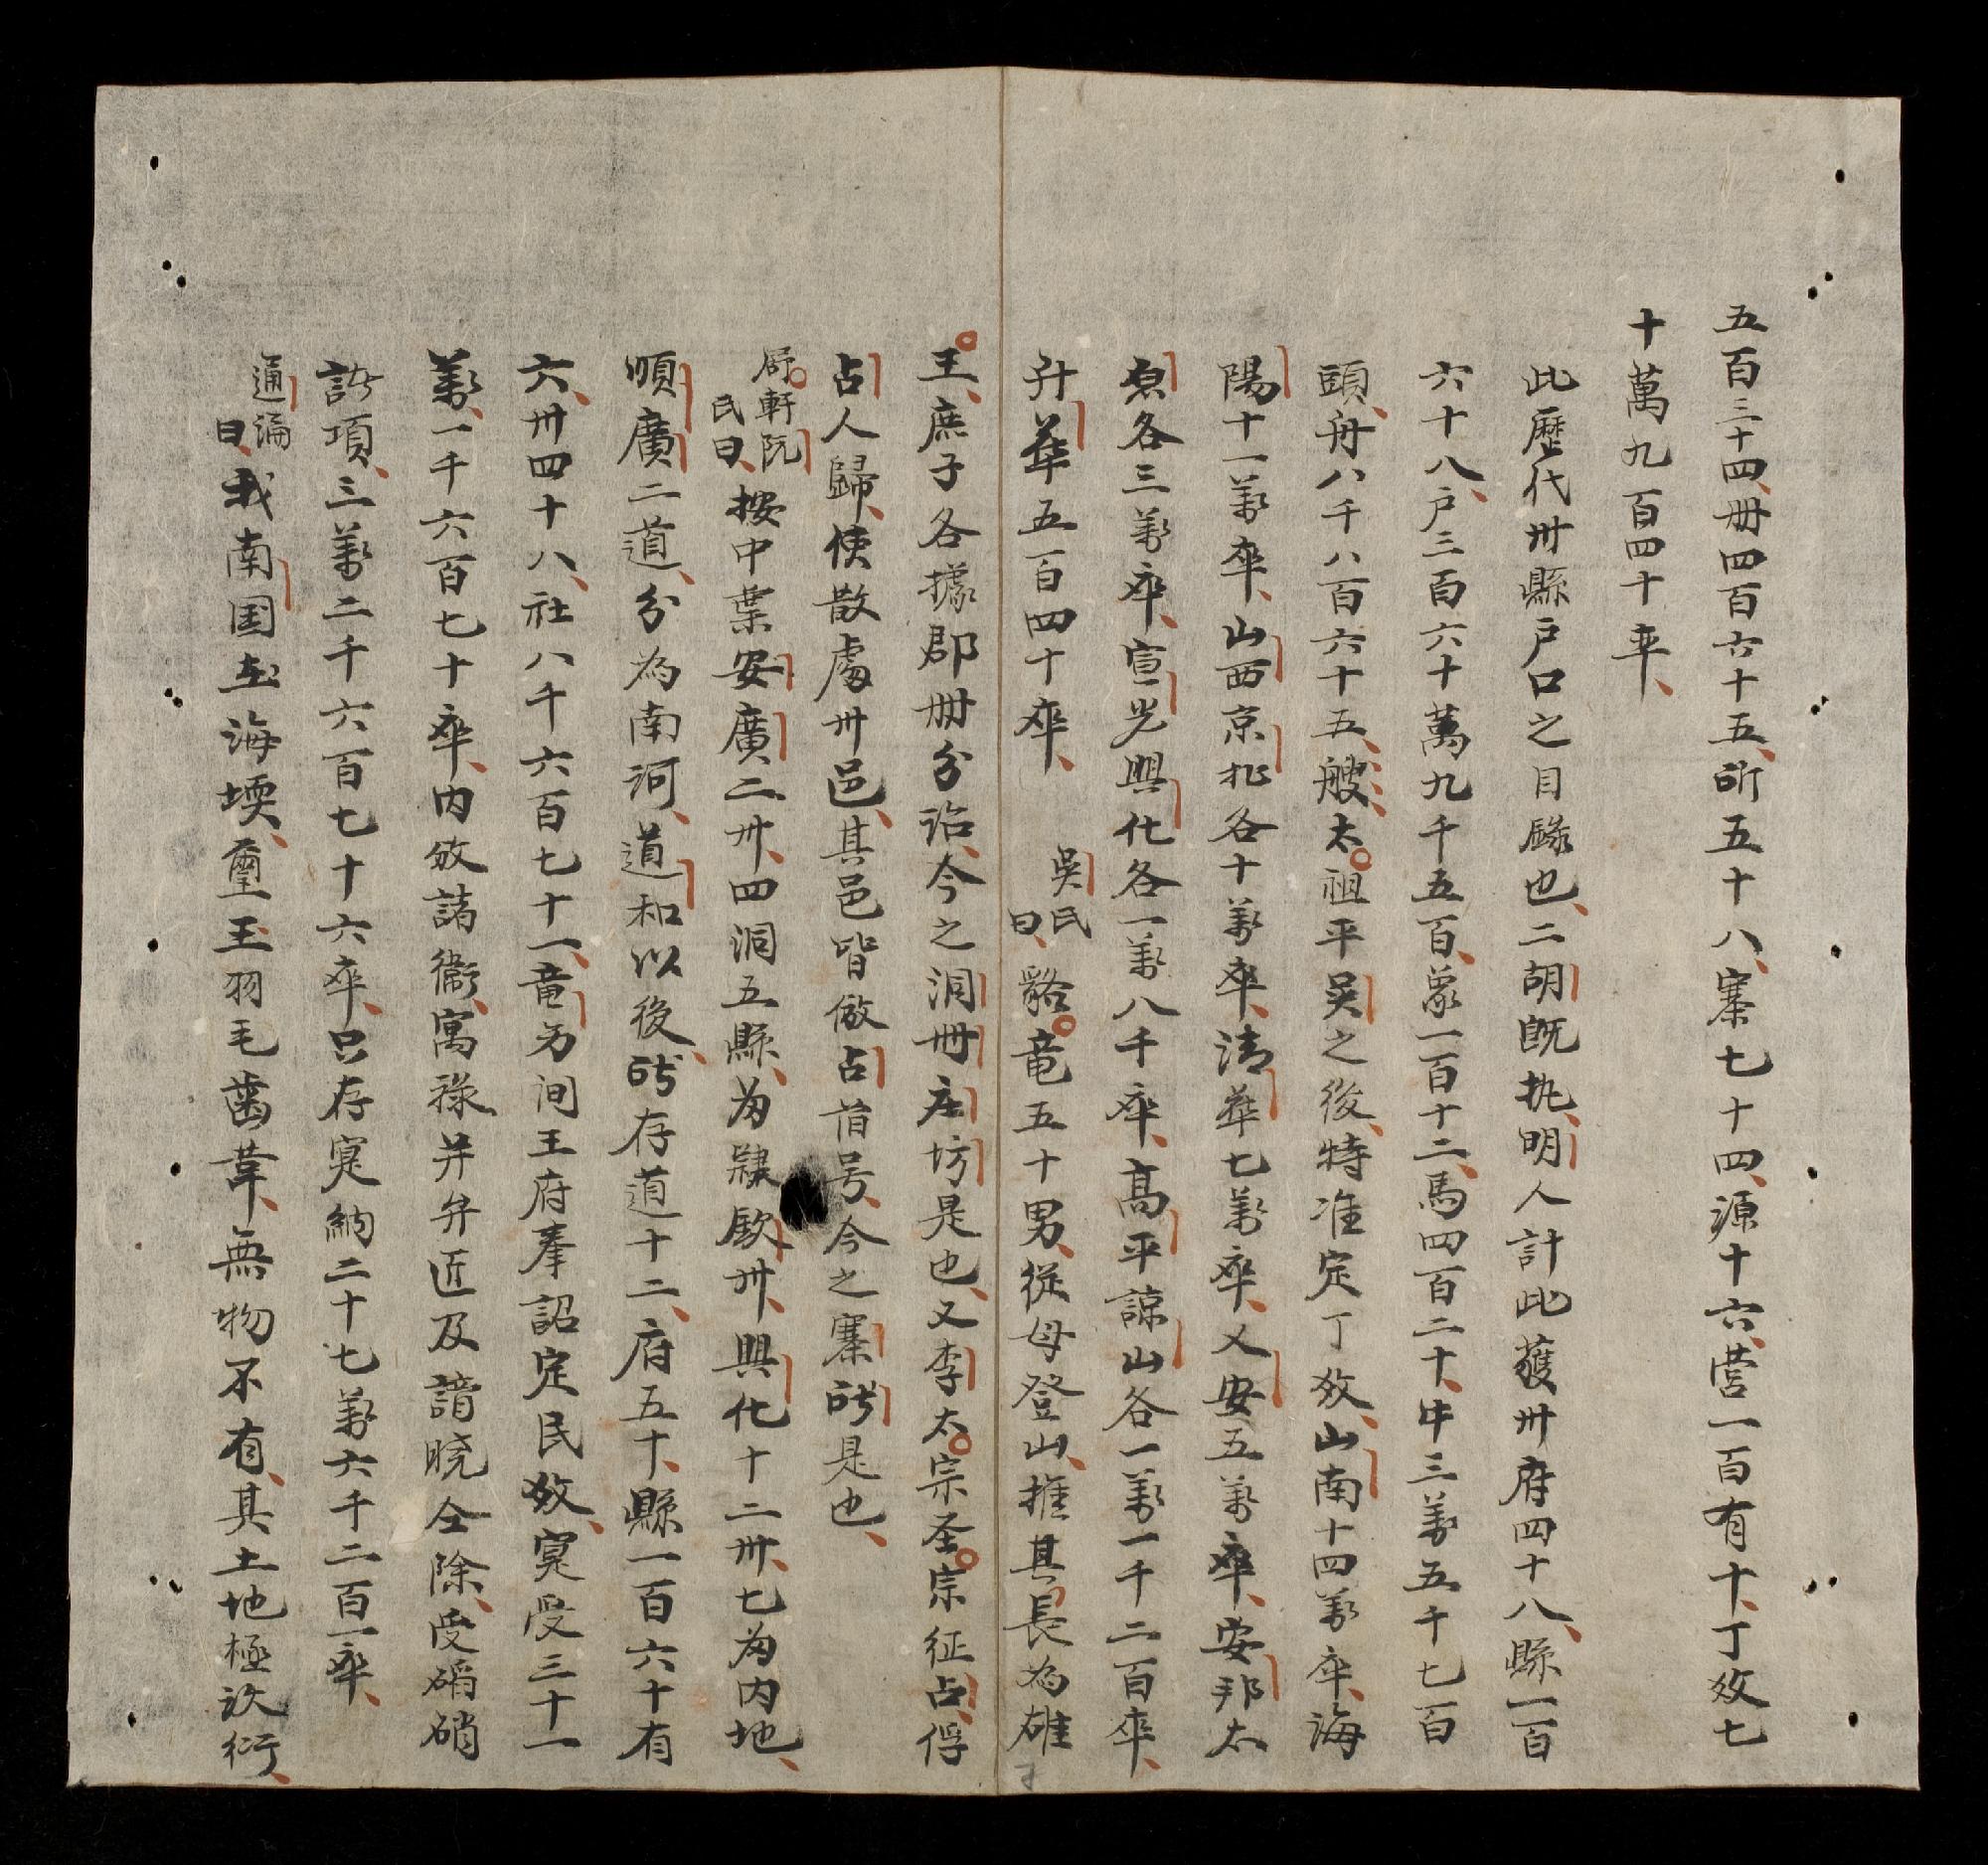 五百三十四、册四百六十五、所五十八、寨七十四、源十六、营一百有十、丁效七
十萬九百四十率、
此歷代卅縣户口之目録也、二胡既执、明人計此獲卅府四十八、縣一百
六十八、户三百六十萬九千五百、象一百十二、馬四百二十、牛三萬五千七百
頭、舟八千八百六十五艘、太祖平吴之後、特准定丁效、山南十四萬率、海
陽十一萬率、山西京北各十萬率、清華七萬率、乂安五萬率、安邦太
原各三萬率、宣光興化各一萬八千率、高平諒山各一萬一千二百率、
升華五百四十率、
吴氏
曰、貉竜五十男、從母登山、推其長為雄
王、庶子各據郡册分治、今之洞册庄坊是也、又李太宗圣宗征占、俘
占人歸、使散處卅邑、其邑皆倣占首号、今之寨所是也、
舒軒阮
氏曰、按中葉安廣二卅、四洞五縣、為隷欽卅、興化十二卅、七為内地、
順廣二道、分為南河、道和以後、所存道十二、府五十、縣一百六十有
六、卅四十八、社八千六百七十一、竜方间王府奉詔定民效、寔受三十一
萬、一千六百七十率、内效諸衞、寓禄并弁匠及諳晓仝除、受磘硝
諸項、三萬二千六百七十六率、只存寔納二十七萬六千二百一率、
通論
曰、我南国在海堧、璽玉羽毛歯革、無物不有、其土地極沃衍、